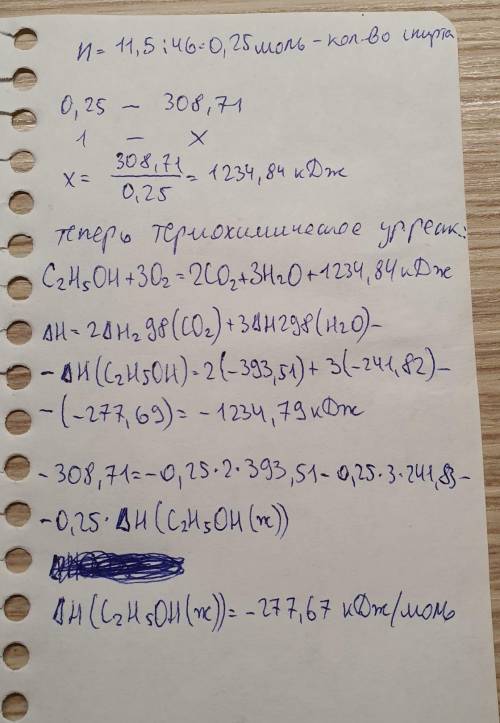 n = 11,5 : 46 = 0,25 моль - кол-во спирта
0,25 — 308,71
1 — x
x = 308,71 / 0,25 = 1234,84 кДж
теперь термохимическое ур. реак.:
C₂H₅OH + 3O₂ = 2CO₂ + 3H₂O + 1234,84 кДж
ΔH = 2ΔH₂98(CO₂) + 3ΔH298(H₂O) -
- ΔH(C₂H₅OH) = 2(-393,51) + 3(-241,82) -
- (-277,69) = - 1234,79 кДж
- 308,71 = -0,25·2·393,51 - 0,25·3·241,83 -
- 0,25·ΔH(C₂H₅OH(ж))
ΔH(C₂H₅OH(ж)) = - 277,67 кДж/моль